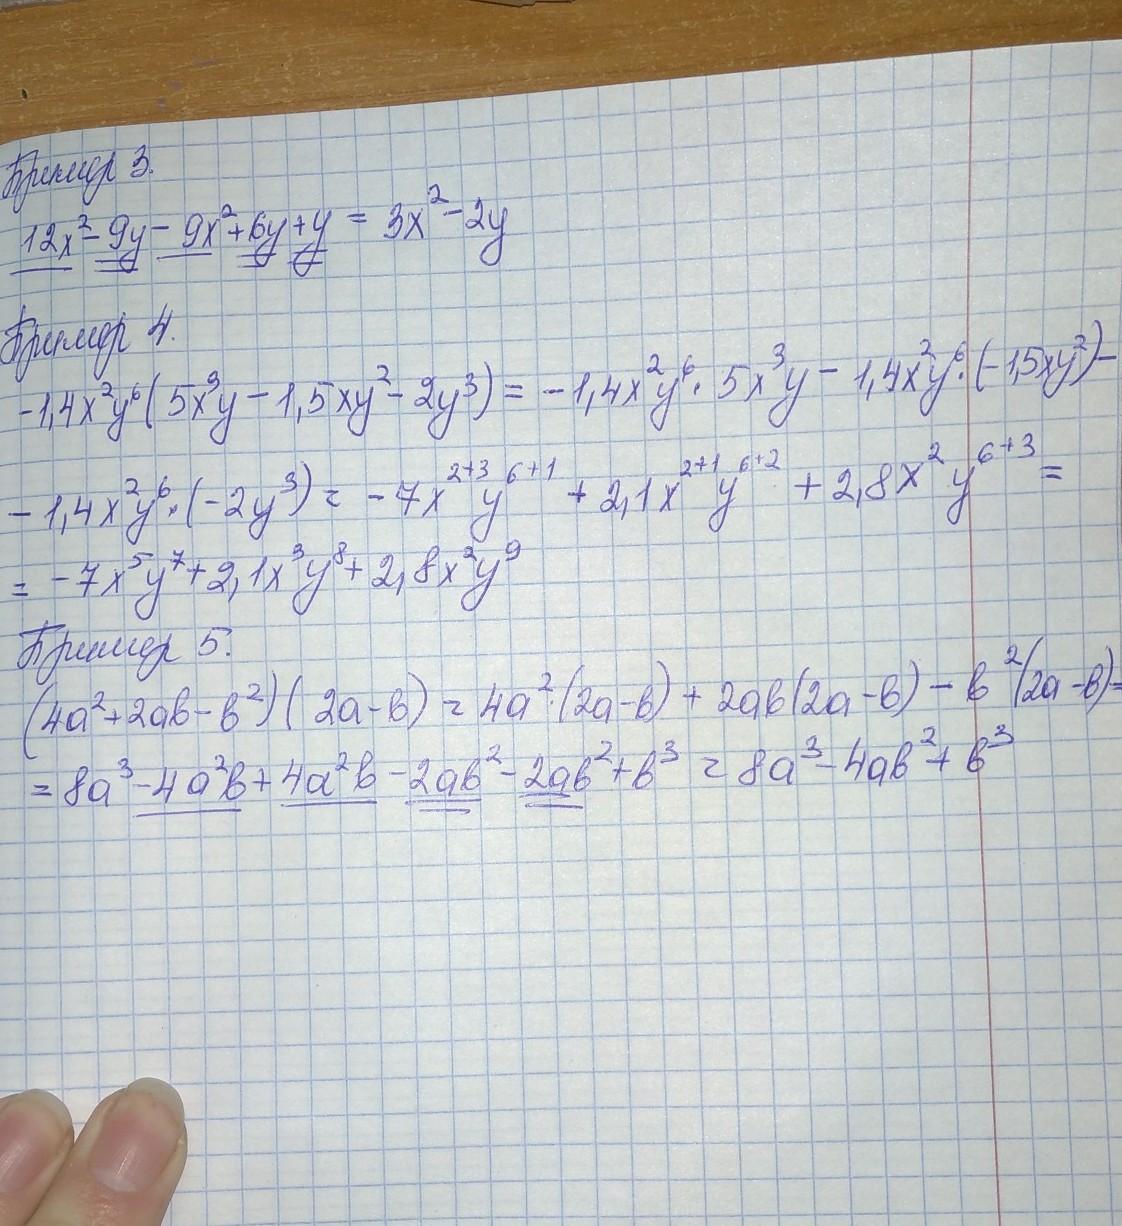 Пример 3.
12x² - 9y - 9x² + 6y + y = 3x² - 2y
Пример 4.
-1,4x²y⁶(5x³y - 1,5xy² - 2y³) = -1,4x²y⁶ · 5x³y - 1,4x²y⁶ · (-1,5xy²) -
- 1,4x²y⁶ · (-2y³) = -7x²⁺³y⁶⁺¹ + 2,1x²⁺¹y⁶⁺² + 2,8x²y⁶⁺³ =
= -7x⁵y⁷ + 2,1x³y⁸ + 2,8x²y⁹
Пример 5.
(4a² + 2ab - b²)(2a - b) = 4a² · (2a - b) + 2ab(2a - b) - b²(2a - b) =
= 8a³ - 4a²b + 4a²b - 2ab² - 2ab² + b³ = 8a³ - 4ab² + b³